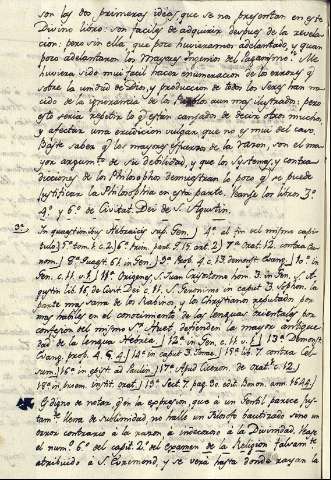 son las dos primeras ideas que se nos presentan en este
Divino libro: son faciles de adquirir despues de la revela-
cion: pero sin ella, que poco huvieramos adelantado, y quan
poco adelantaron los mayores ingenios del Paganismo. Me
huviera sido mui facil hacer enumeracion de los errores q
sobre la unidad de Dios, y produccion de todos los Seres han na-
cido de la ignorancia de los Pueblos aun mas ilustrados; pero
esto sería repetir lo q están cansados de decir otros muchos,
y afectar una erudicion vulgar, que no es mui del caso.
Baste saber q los mayores esfuerzos de la razon, son el ma-
yor argumto. de su debilidad, y que los Systemas, y contra-
dicciones de los Philosophos demuestran lo poco q se puede
justificar la Philosophia en esta parte. Veanse los libros 3º
4º y 6º de Civitat. Dei de S. Agustin.
3ª In quaestionibus Hebraicis sup. Gen. 4º al fin del mismo capit-
tulo 5º tom. 1. c. 2 6º trim. part. 9. 15. art. 2 7º Orat. 12. contra Gu-
nom. 8º August. ibi in Gen. 9º Prob. 4. c. 13. demonst. Evang. 10º in
Gen. c. 11. v. 1. 11º Origenes, S. Juan Crysostomo hom. 3. in Gen. S. A-
gustin lib. 16. de Civit. Dei c. 11. S. Geronimo in caput 3. Sophon. la
parte mas sana de los Rabinos, y los Chrystianos reputados por
mas habiles en el conocimiento de las lenguas orientales por
confesion del mismo Sr. Huet defienden la mayor antigue-
dad de la lengua Hebrea. 12º in Gen. c. 11. v. 1. 13º Demonst.
Evang. prob. 4. 14º in caput 3. Isaiae. 15º lib. 7. contra Cel-
sum. 16º in epist. ad Paulin. 17º Apud Ciceron. de orat. c. 12.
18º in buem. instit. orat. 19º Sect. 7. pag. 30. edit. Bonon. ann. 1644.
Es digno de notar q en la expresion, que a un Gentil parece jus-
tamte. llena de sublimidad, no halle un Filosofo bautizado sino un
error contrario à la razon, è indecoroso à la Divinidad. Vease
el num. 6º del capit. 2º del Examen de la Religion falsamte.
atribuido à S. Evremond, y se verá hasta donde rayan la